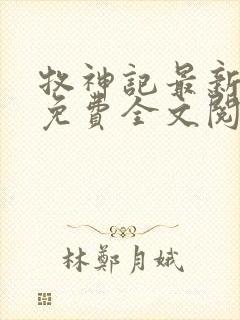 牧神記最新
免費全文閱
林鄭月娥